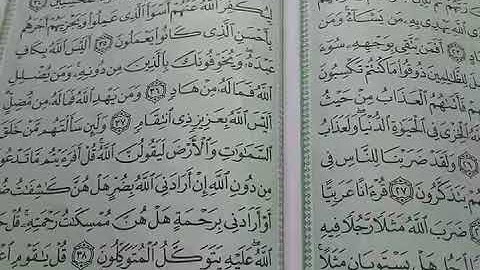 يَهْدِى بِهِۦ مَن يَشَآءُ وَمَن
أَفَمَن يَتَّقِى بِوَجْهِهِۦ سُوٓءَ
لِلظَّٰلِمِينَ ذُوقُوا۟ مَا كُنتُمْ تَكْسِبُونَ
فَأَتَىٰهُمُ ٱلْعَذَابُ مِنْ حَيْثُ
ٱللَّهُ ٱلْخِزْىَ فِى ٱلْحَيَوٰةِ ٱلدُّنْيَا وَلَعَذَابُ
وَلَقَدْ ضَرَبْنَا لِلنَّاسِ فِى
هُمْ يَتَذَكَّرُونَ ٢٧ قُرْءَانًا عَرَبِيًّا
ضَرَبَ ٱللَّهُ مَثَلًا رَّجُلًا فِيهِ
هَلْ يَسْتَوِيَانِ مَثَلًا
لِيُكَفِّرَ ٱللَّهُ عَنْهُمْ أَسْوَأَ ٱلَّذِى عَمِلُوا۟ وَيَجْزِيَهُمْ أَجْرَهُم
بِأَحْسَنِ ٱلَّذِى كَانُوا۟ يَعْمَلُونَ ٣٥ أَلَيْسَ ٱللَّهُ بِكَافٍ
عَبْدَهُۥ وَيُخَوِّفُونَكَ بِٱلَّذِينَ مِن دُونِهِۦ وَمَن يُضْلِلِ
ٱللَّهُ فَمَا لَهُۥ مِنْ هَادٍ ٣٦ وَمَن يَهْدِ ٱللَّهُ فَمَا لَهُۥ مِن مُّضِلٍّ
أَلَيْسَ ٱللَّهُ بِعَزِيزٍ ذِى ٱنتِقَامٍ ٣٧ وَلَئِن سَأَلْتَهُم مَّنْ خَلَقَ
ٱلسَّمَٰوَٰتِ وَٱلْأَرْضَ لَيَقُولُنَّ ٱللَّهُ قُلْ أَفَرَءَيْتُم مَّا تَدْعُونَ
مِن دُونِ ٱللَّهِ إِنْ أَرَادَنِىَ ٱللَّهُ بِضُرٍّ هَلْ هُنَّ كَٰشِفَٰتُ
أَوْ أَرَادَنِى بِرَحْمَةٍ هَلْ هُنَّ مُمْسِكَٰتُ رَحْمَتِهِۦ قُلْ
ٱللَّهُ عَلَيْهِ يَتَوَكَّلُ ٱلْمُتَوَكِّلُونَ ٣٨ قُلْ يَٰقَوْمِ